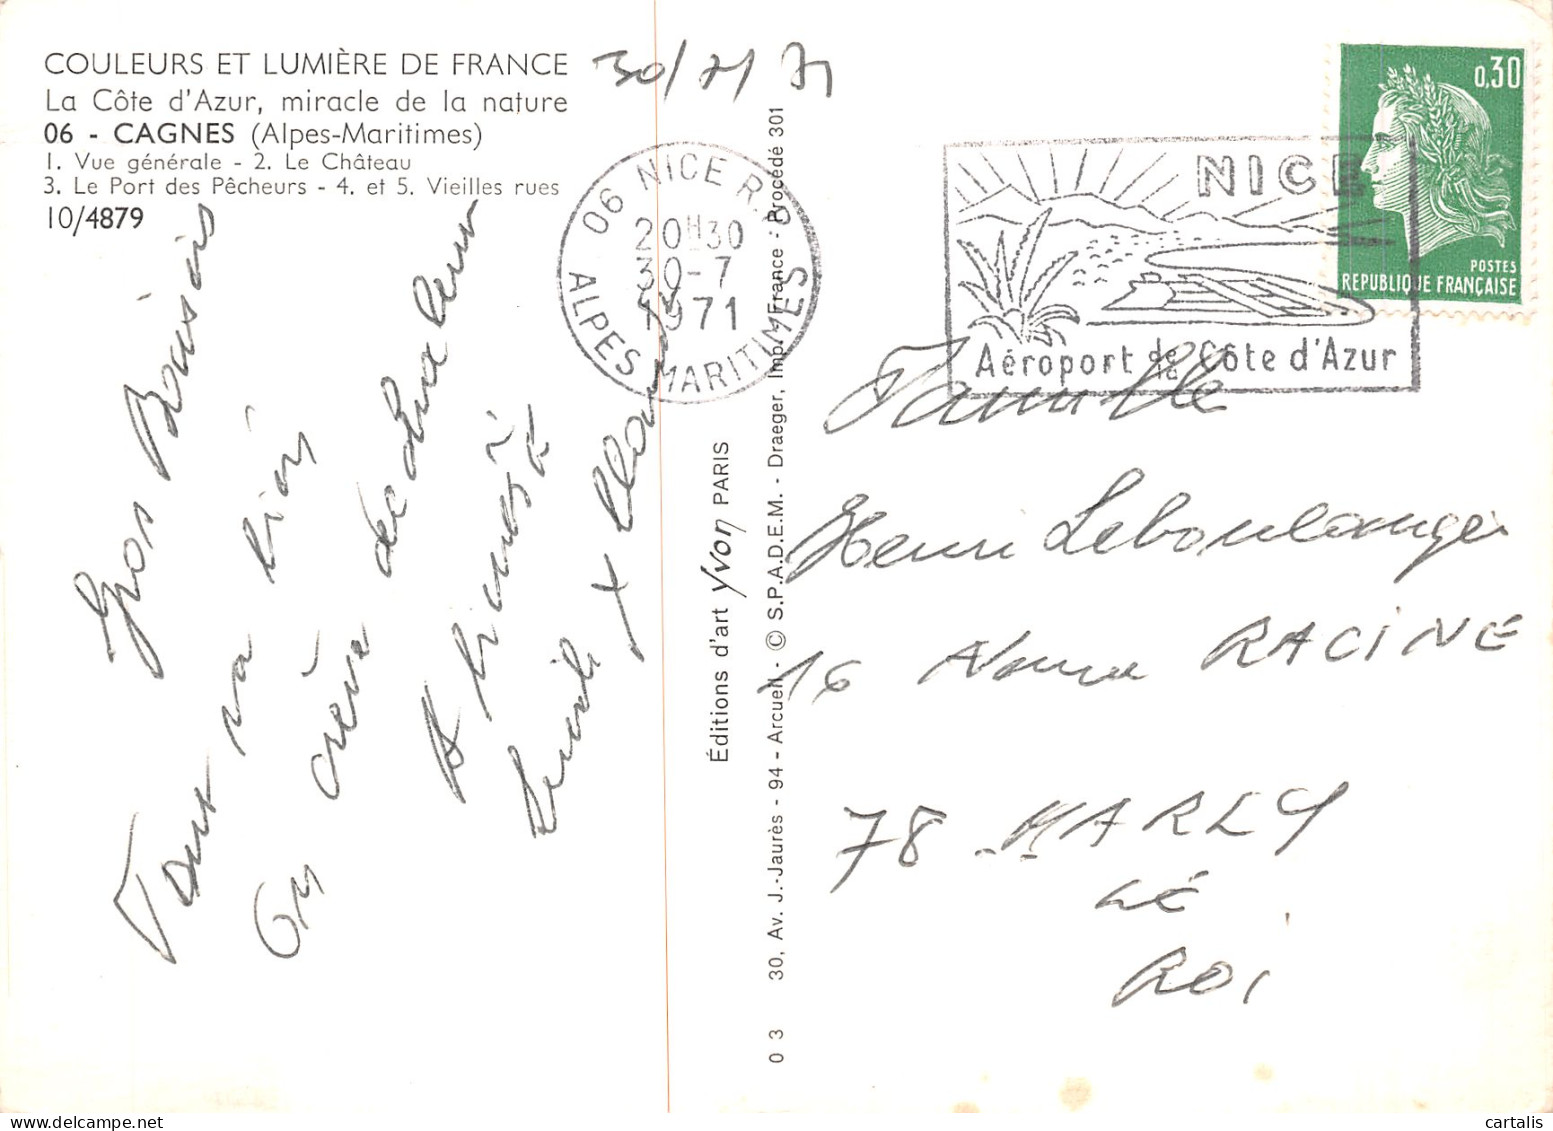 COULEURS ET LUMIÈRE DE FRANCE
La Côte d'Azur, miracle de la nature
06 - CAGNES (Alpes-Maritimes)
1. Vue générale - 2. Le Château
3. Le Port des Pêcheurs - 4. et 5. Vieilles rues
10/4879
30/7/71
06 NICE R.P.
20H30
30-7
1971
ALPES MARITIMES
NICE
Aéroport de la Côte d'Azur
0,30
POSTES
REPUBLIQUE FRANÇAISE
Gros Baisers
Tout va bien
On crève de chaleur
A bientôt
Editions d'art Yvon PARIS
30, Av. J.-Jaurès - 94 - Arcueil - © S.P.A.D.E.M. - Draeger, Imp. France - Procédé 301
0 3
Famille
Henri Leboulanger
16 RACINE
78 MARLY
LE
ROI
cartalis